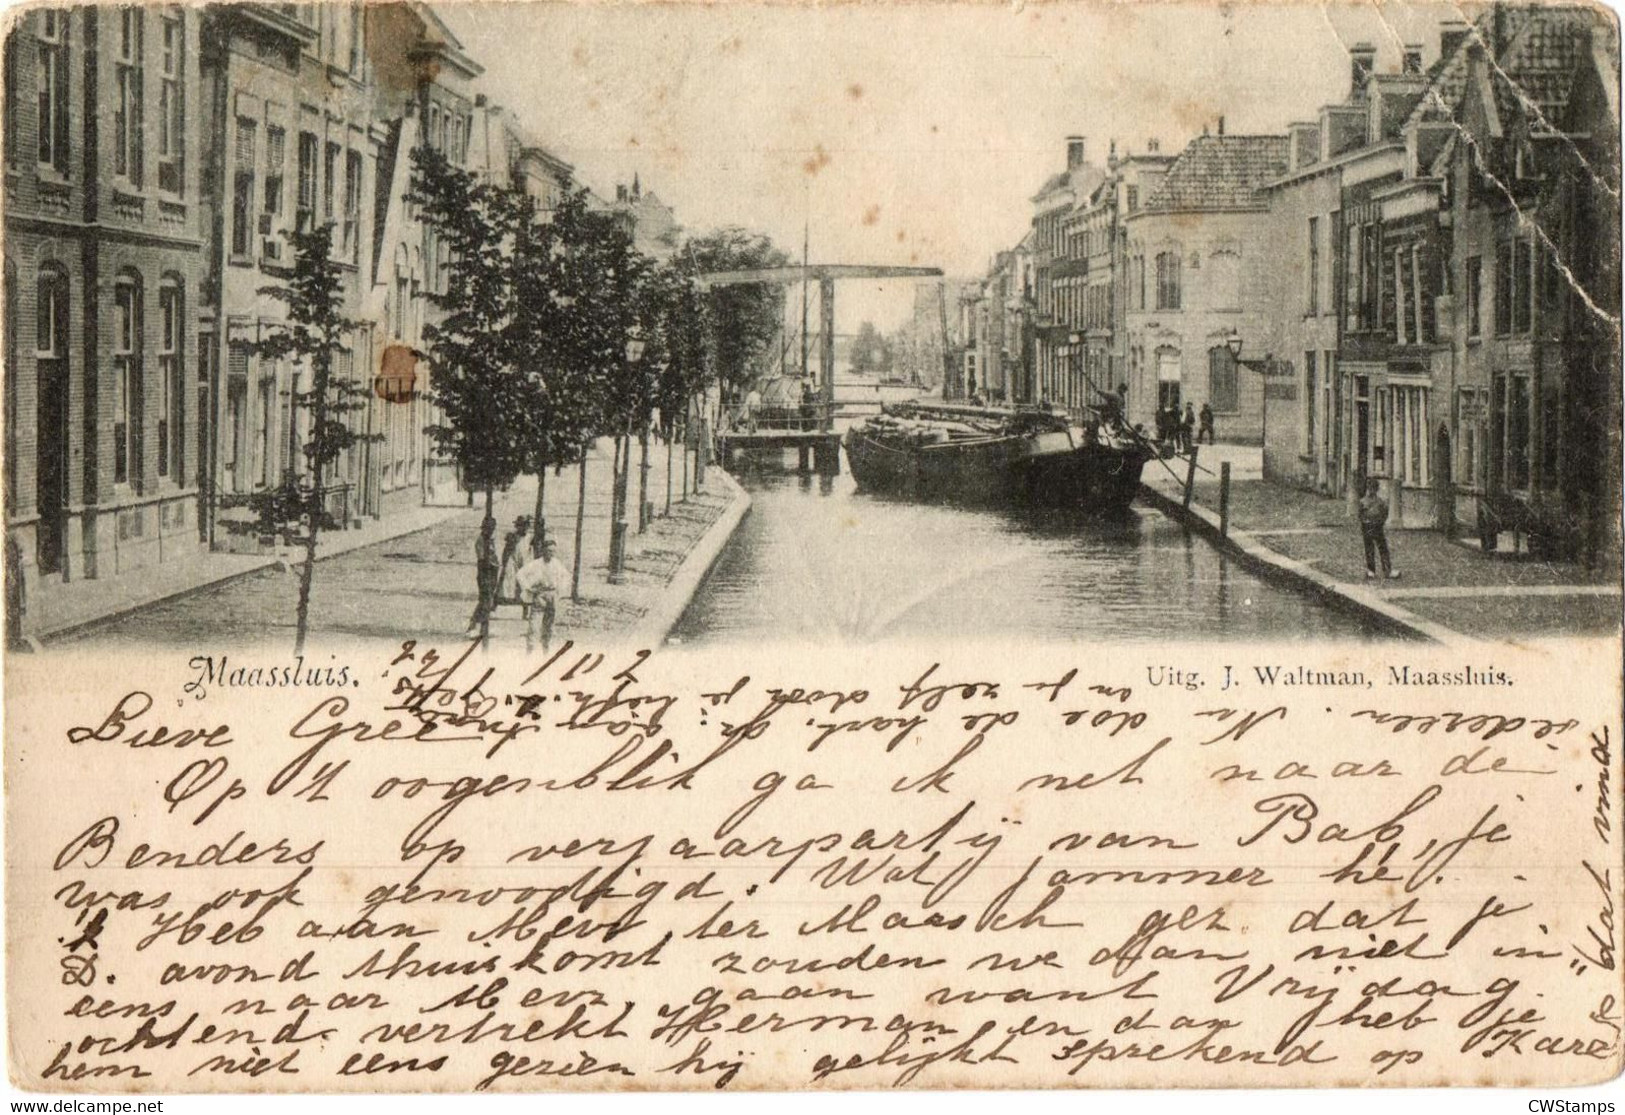 Maassluis.
Uitg. J. Waltman, Maassluis.
Lieve Gree
Op 't oogenblik ga ik net naar de
Benders op verjaarpartij van Bab, je
was ook genoodigd. Wat jammer hè.
'k Heb aan Mevr ter Maasch gez. dat je
D. avond thuiskomt zouden we dan niet in
eens naar Mevr. gaan want Vrijdag
ochtend vertrekt Herman en dan heb je
hem niet eens gezien hij gelijkt sprekend op Karel
dat vind
iedereen. Nu doe de hart. gr: aan
en je zelf door je
CWStamps
Copyright delcampe.net